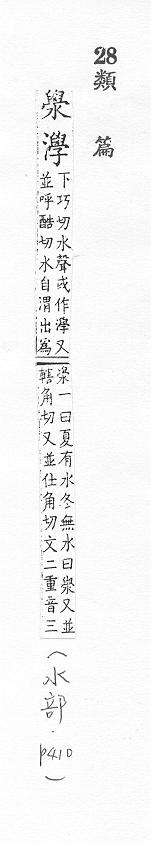 28
類篇
澩 澩
下巧切水聲或作澩又
並呼酷切水自渭出爲
澩一曰夏有水冬無水曰澩又並
轄角切又並仕角切文二重音三
(水部.p410)